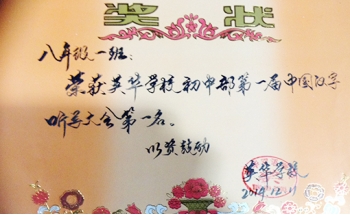 奖状
八年级一班：
荣获英华学校初中部第一届中国汉字
听写大会第一名。
以资鼓励
英华学校
2014.12.11